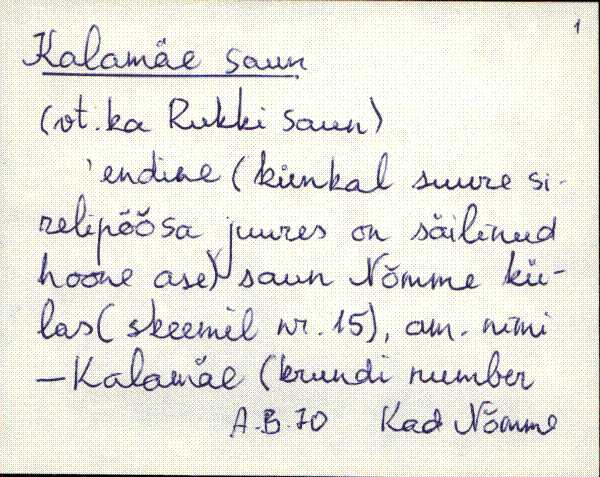 1
Kalamäe saun
(vt. ka Rukki saun)
'endine (künkal suure si-
relipõõsa juures on säilinud
hoone ase) saun Nõmme kü-
las (skeemil nr. 15), am. nimi
– Kalamäe (krundi number
A.B.70 Kad Nõmme